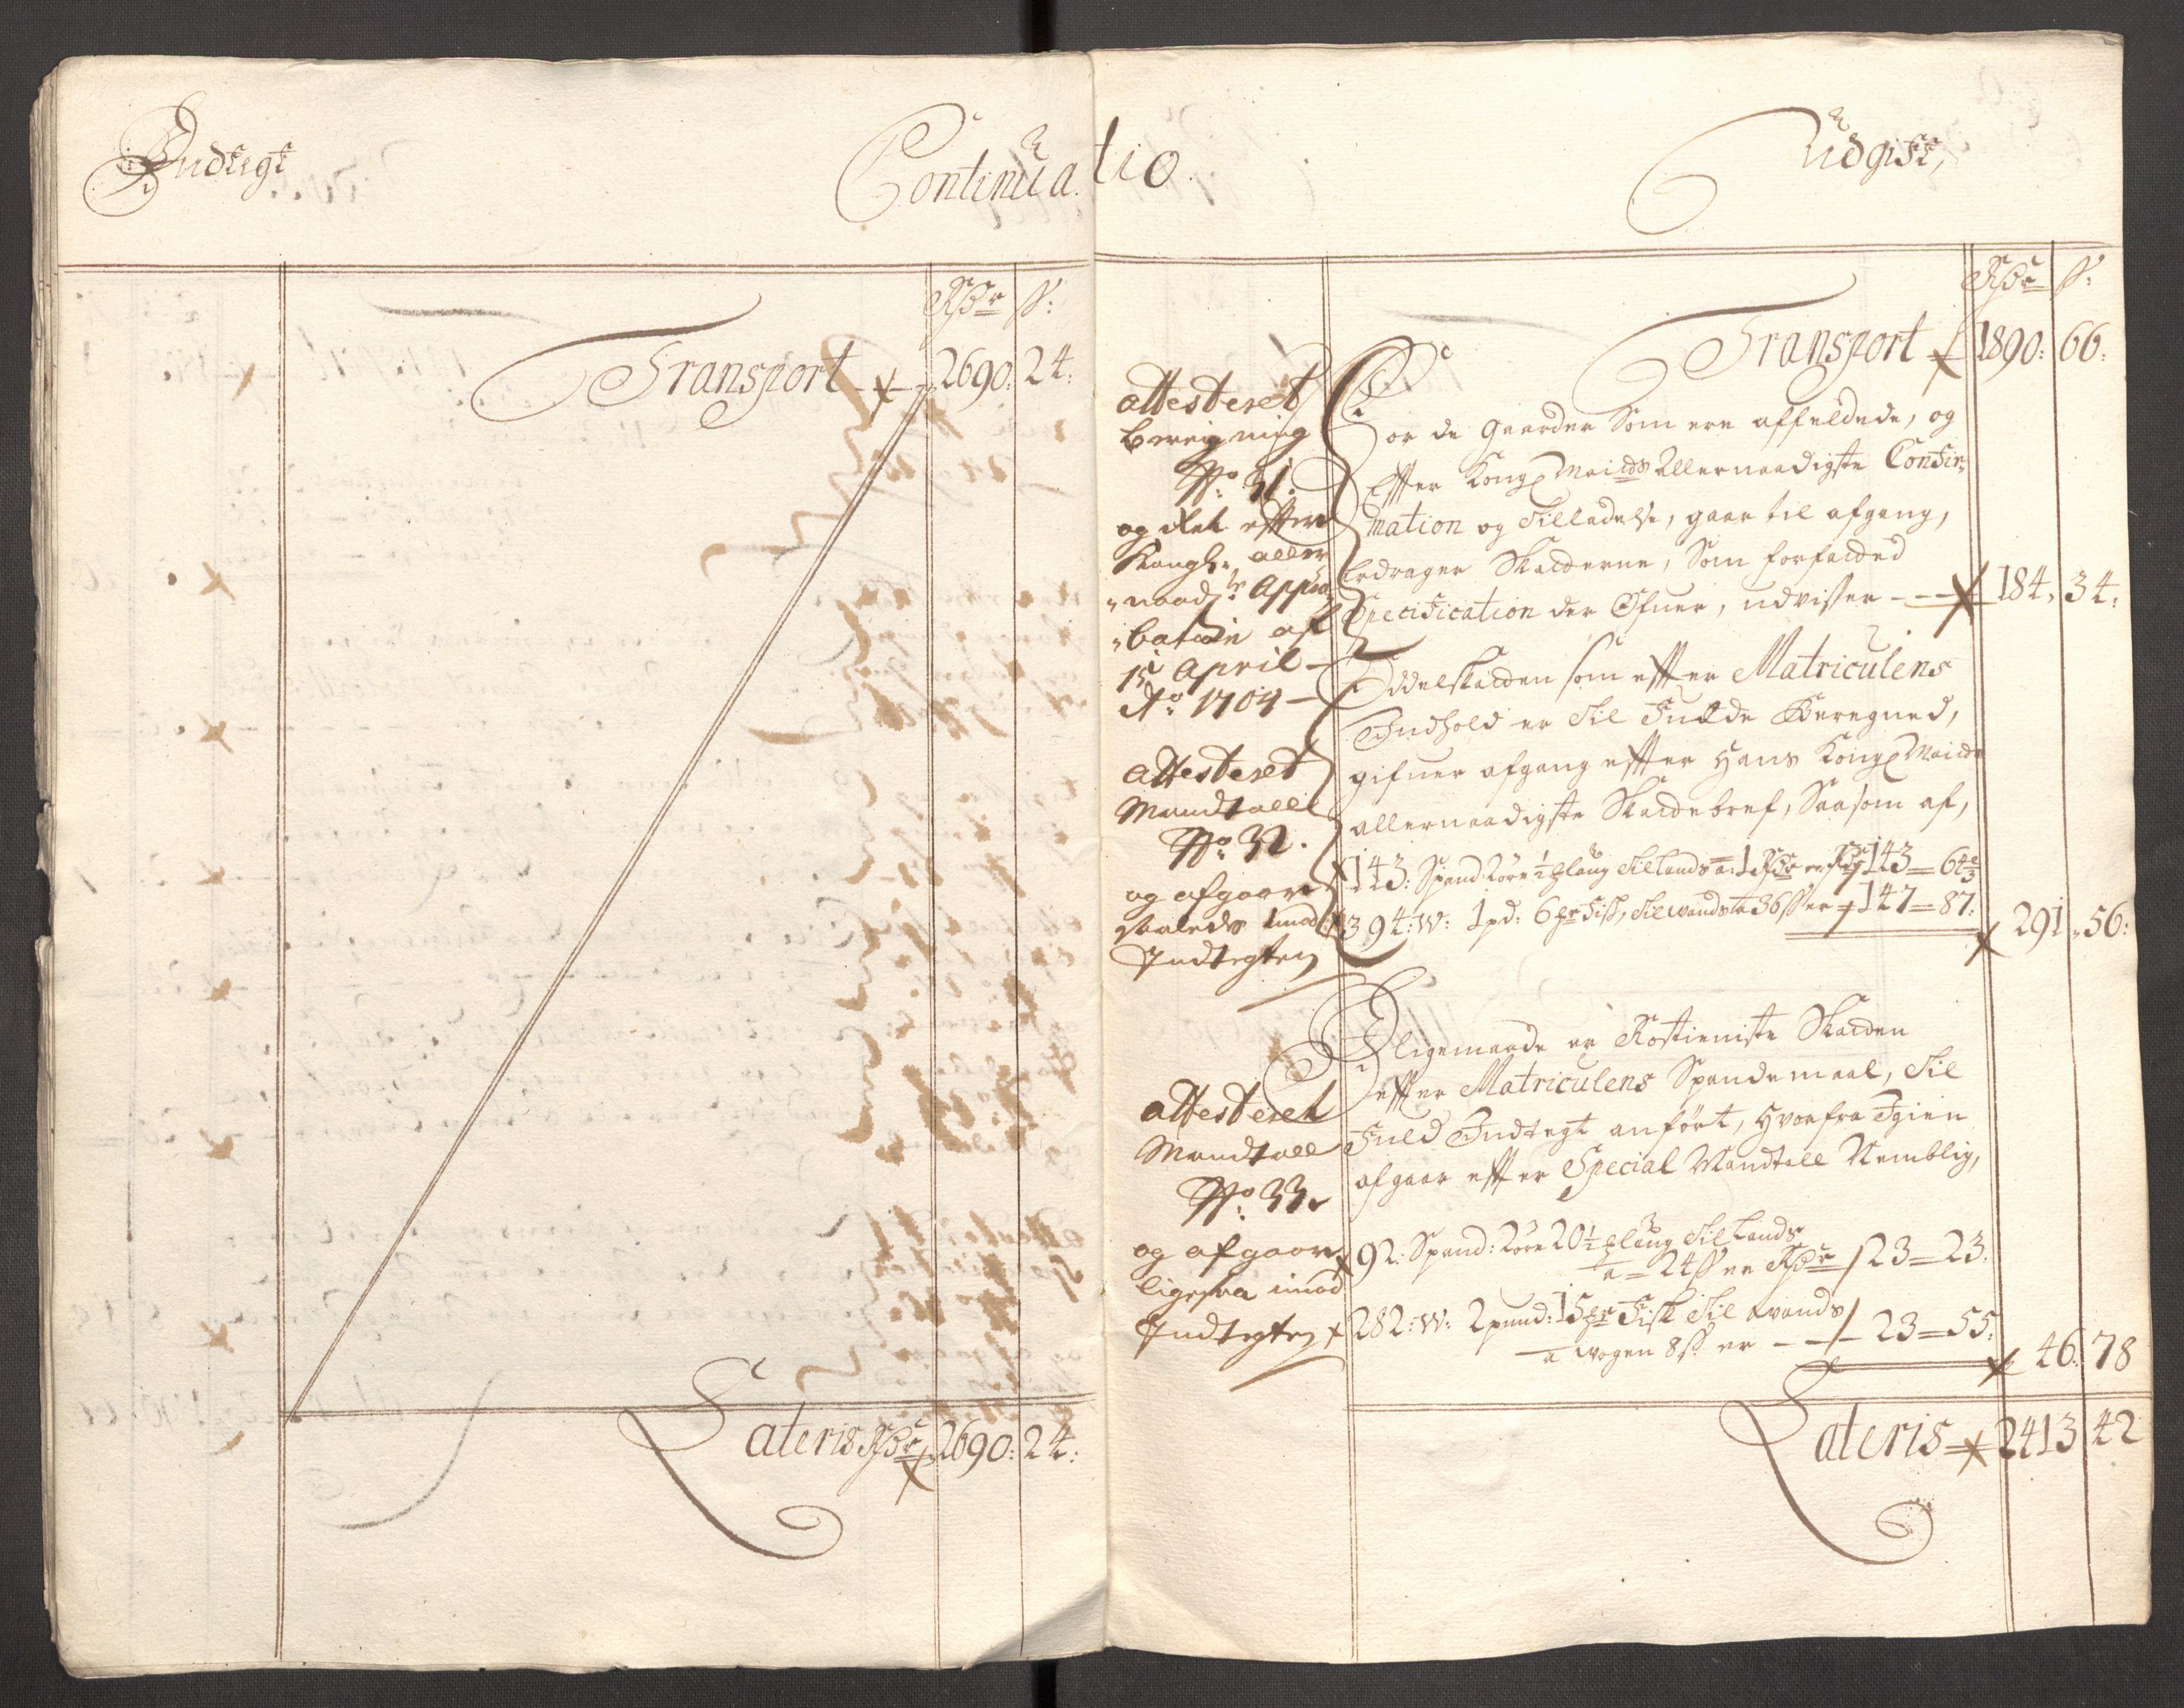 Indtegt
Continuatio.
Udgift,
Rdr ß:
Transport 2690: 24:
Lateris Rdr 2690: 24:
Rdr ß:
Transport 1890: 66:
attesteret
bereigning
No: 31.
og det efter
Kongl. aller
naadst Appro
batoin af
15 April
Ao: 1704
For de Gaarder som ere affeldede, og
Effter Kongl Maids Allernaadigste Confir-
mation og Tilladelse, gaar til afgang,
bedrager Skatterne, som forfatted
Specification der Ofuer, udviser - - - 184, 34:
attesteret
Mandtall
No: 32.
og afgaar
saaleds imod
Indtegten
Oddelskatten som effter Matriculens
Indhold er til Fulde Beregned,
gifuer afgang effter Hans Kongl Maids
allernaadigste Skattebref, Saasom af,
143: Spand 2 ører ½ Mlaug til Lands a 1 Rdr er Rdr 143 = 64⅔
394: W: 1 pd: 6 mr Fisk, til wands a 36 ß er 147 = 87:
291. 56:
attesteret
Mandtall
No: 33.
og afgaar
ligesaa imod
Indtegten
I ligemaade er Rostieniste Skatten
effter Matriculens Spandemaal, til
Fuld Indtegt anført, Hvorfra Igien
afgaar effter Special Mandtall Nemblig,
92: Spand: 2 øre 20½ Mlaug til Lands
a 24 ß er Rdr 23 = 23.
282: W: 2 pund: 15 mr Fisk til wands
a wogen 8 ß. er - - 23 = 55:
46. 78
Lateris 2413 42